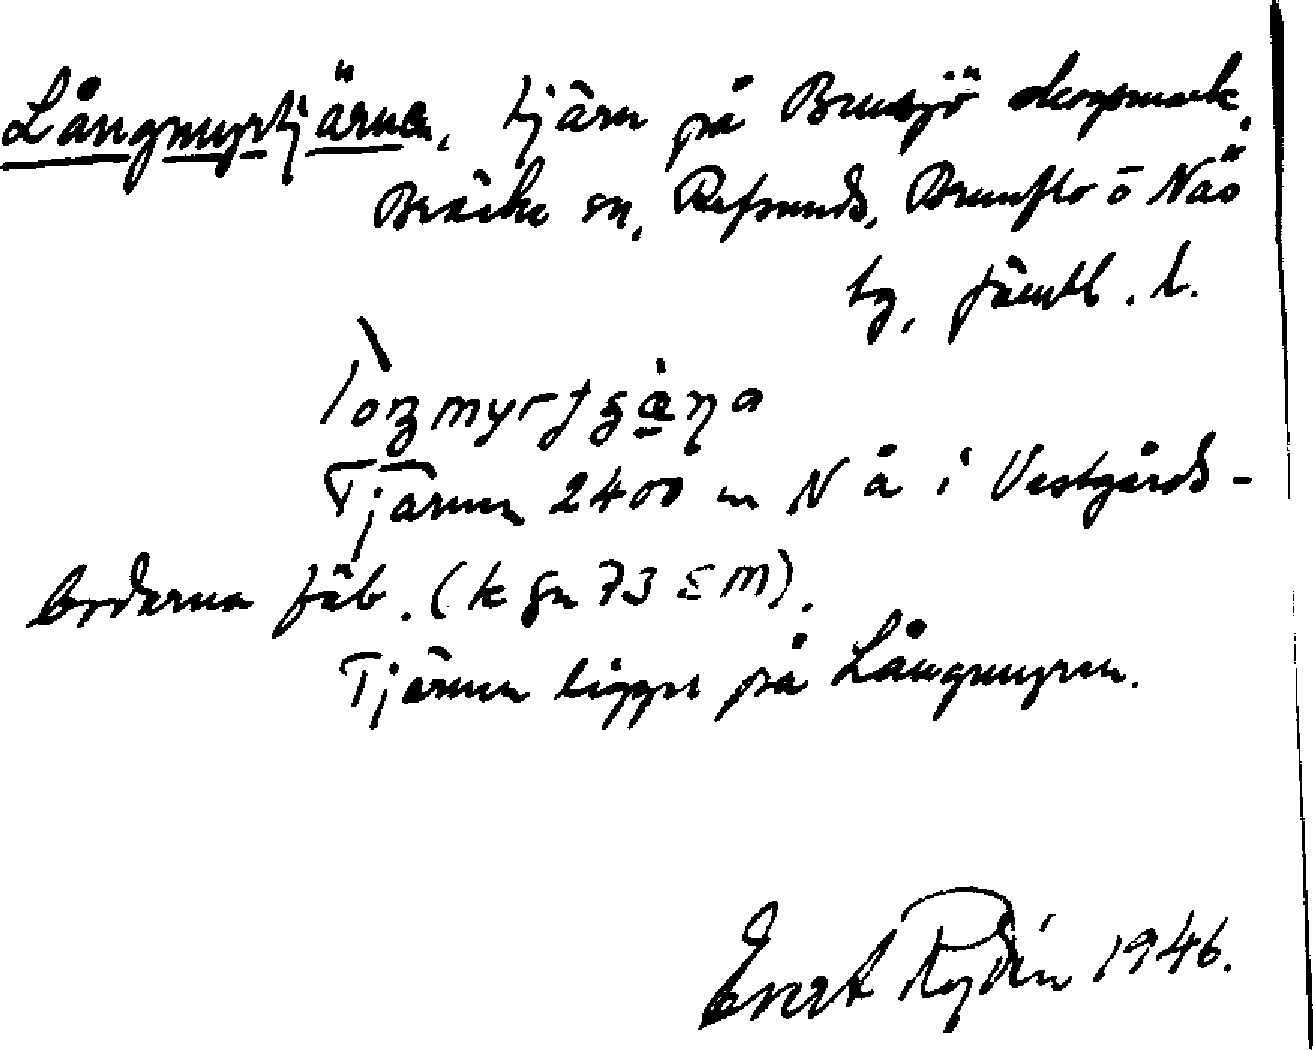 Långmyrtjärna, tjärn på Bensjö skogsmark,
Bräcke sn, Refsunds, Brunflo o Näs
tg, Jämtl. l.
Tjärnen 2400 m N å i Västgårds-
bodarna fäb. (k gn 73 SM).
Tjärnen ligger på Långmyren.
Evert Rydén 1946.